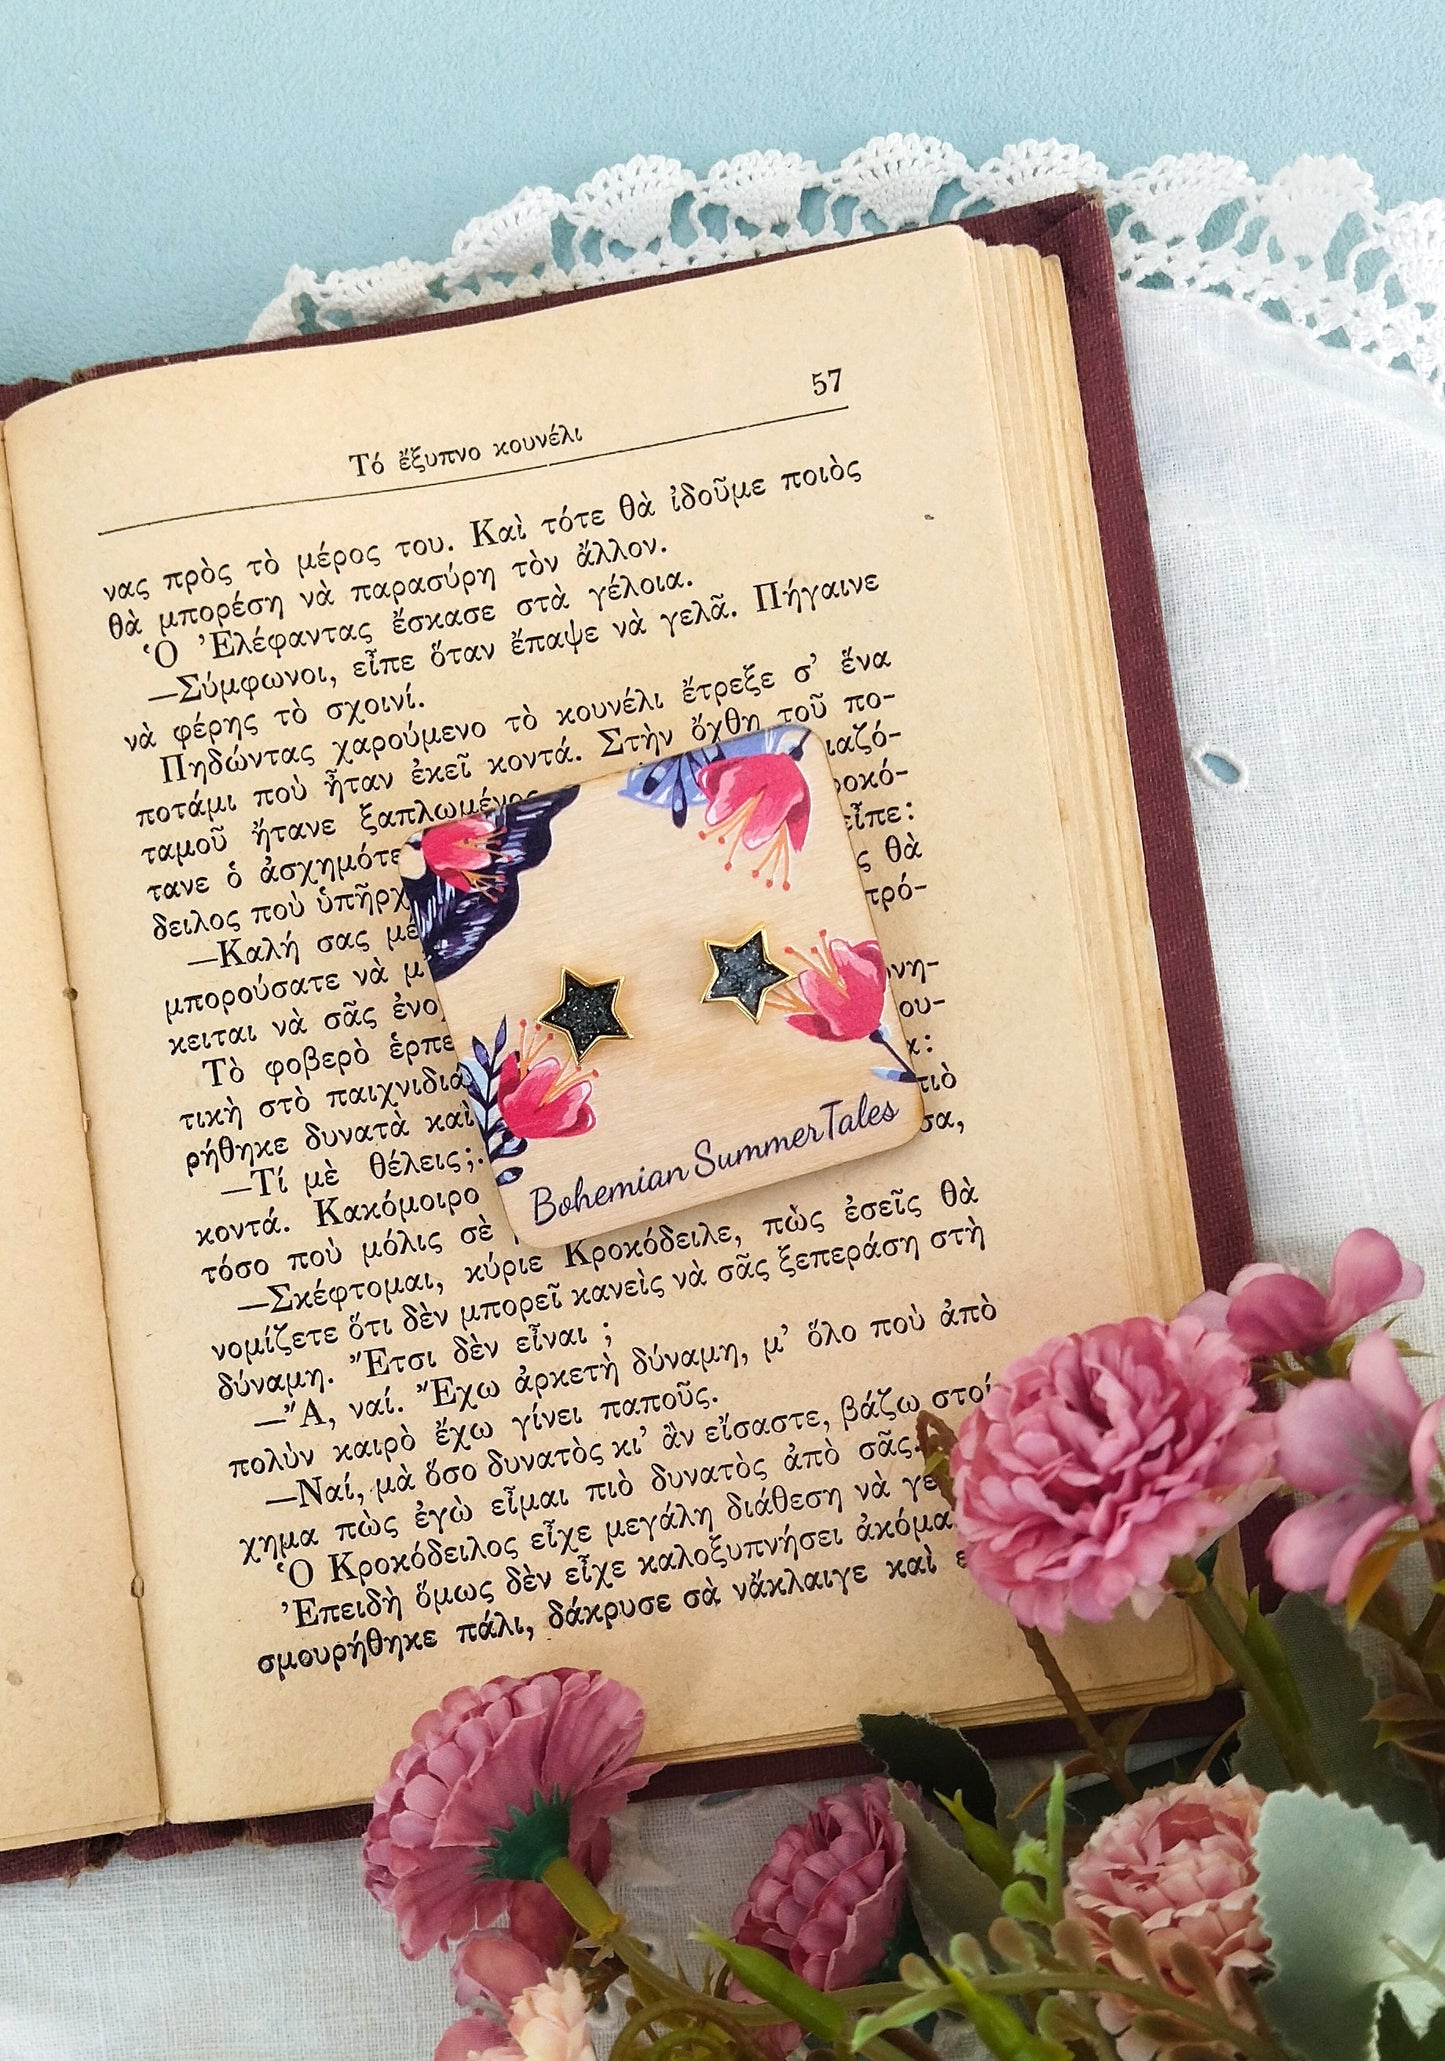 57
Τό ἔξυπνο κουνέλι
νας πρὸς τὸ μέρος του. Καὶ τότε θὰ ἰδοῦμε ποιὸς
θὰ μπορέση νὰ παρασύρη τὸν ἄλλον.
Ὁ Ἐλέφαντας ἔσκασε στὰ γέλοια.
—Σύμφωνοι, εἶπε ὅταν ἔπαψε νὰ γελᾶ. Πήγαινε
νὰ φέρης τὸ σχοινί.
Πηδώντας χαρούμενο τὸ κουνέλι ἔτρεξε σ' ἕνα
ποτάμι ποὺ ἦταν ἐκεῖ κοντά. Στὴν ὄχθη τοῦ πο-
ταμοῦ ἤτανε ξαπλωμένος ιαζό-
τανε ὁ ἀσχημότε ροκό-
δειλος ποὺ ὑπῆρχ εἶπε:
—Καλή σας μέ ς θὰ
μπορούσατε νὰ μ τρό-
κειται νὰ σᾶς ἐνο
Τὸ φοβερὸ ἑρπε νη-
τικὴ στὸ παιχνιδιά ου-
ρήθηκε δυνατὰ καὶ α:
—Τί μὲ θέλεις; πιὸ
κοντά. Κακόμοιρο σα,
τόσο ποὺ μόλις σὲ
—Σκέφτομαι, κύριε Κροκόδειλε, πὼς ἐσεῖς θὰ
νομίζετε ὅτι δὲν μπορεῖ κανεὶς νὰ σᾶς ξεπεράση στὴ
δύναμη. Ἔτσι δὲν εἶναι ;
—Ἄ, ναί. Ἔχω ἀρκετὴ δύναμη, μ' ὅλο ποὺ ἀπὸ
πολὺν καιρὸ ἔχω γίνει παποῦς.
—Ναί, μὰ ὅσο δυνατὸς κι' ἂν εἴσαστε, βάζω στοί
χημα πὼς ἐγὼ εἶμαι πιὸ δυνατὸς ἀπὸ σᾶς.
Ὁ Κροκόδειλος εἶχε μεγάλη διάθεση νὰ γε
Ἐπειδὴ ὅμως δὲν εἶχε καλοξυπνήσει ἀκόμα
σμουρήθηκε πάλι, δάκρυσε σὰ νἄκλαιγε καὶ
Bohemian SummerTales